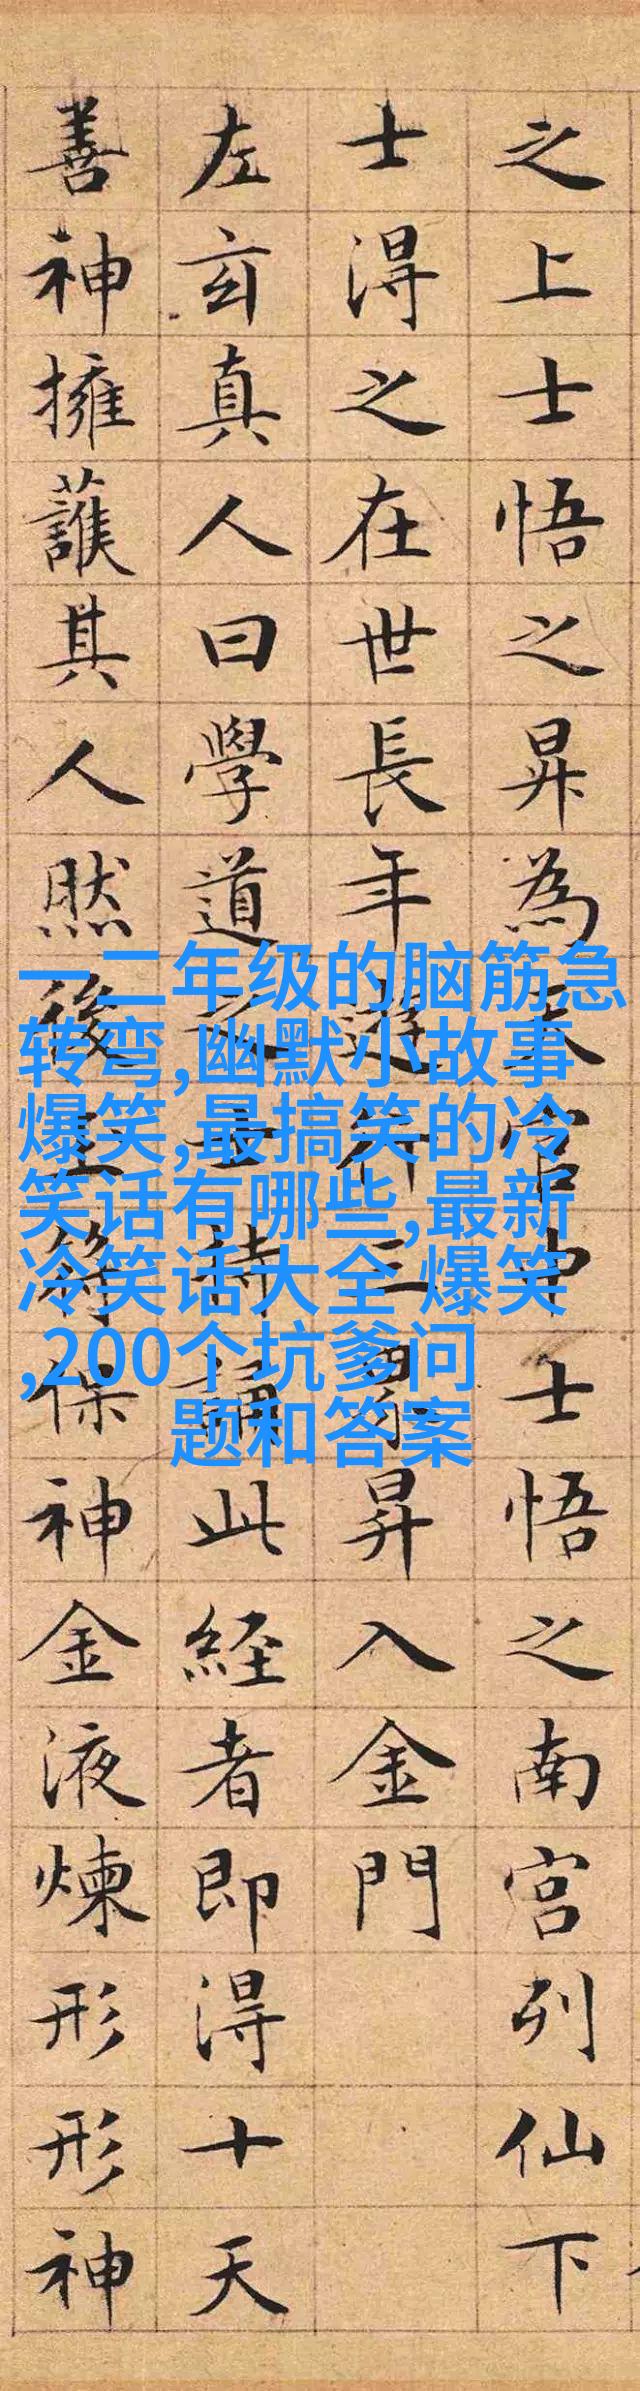 之上士悟之昇為天官中士悟之南宮列仙下
士得之在世長年遊行三界昇入金門
左玄真人曰學道之士持誦此經者即得十天
善神擁護其人然後玉符保神金液煉形形神
一二年级的脑筋急
转弯,幽默小故事
爆笑,最搞笑的冷
笑话有哪些,最新
冷笑话大全 爆笑
,200个坑爹问
题和答案